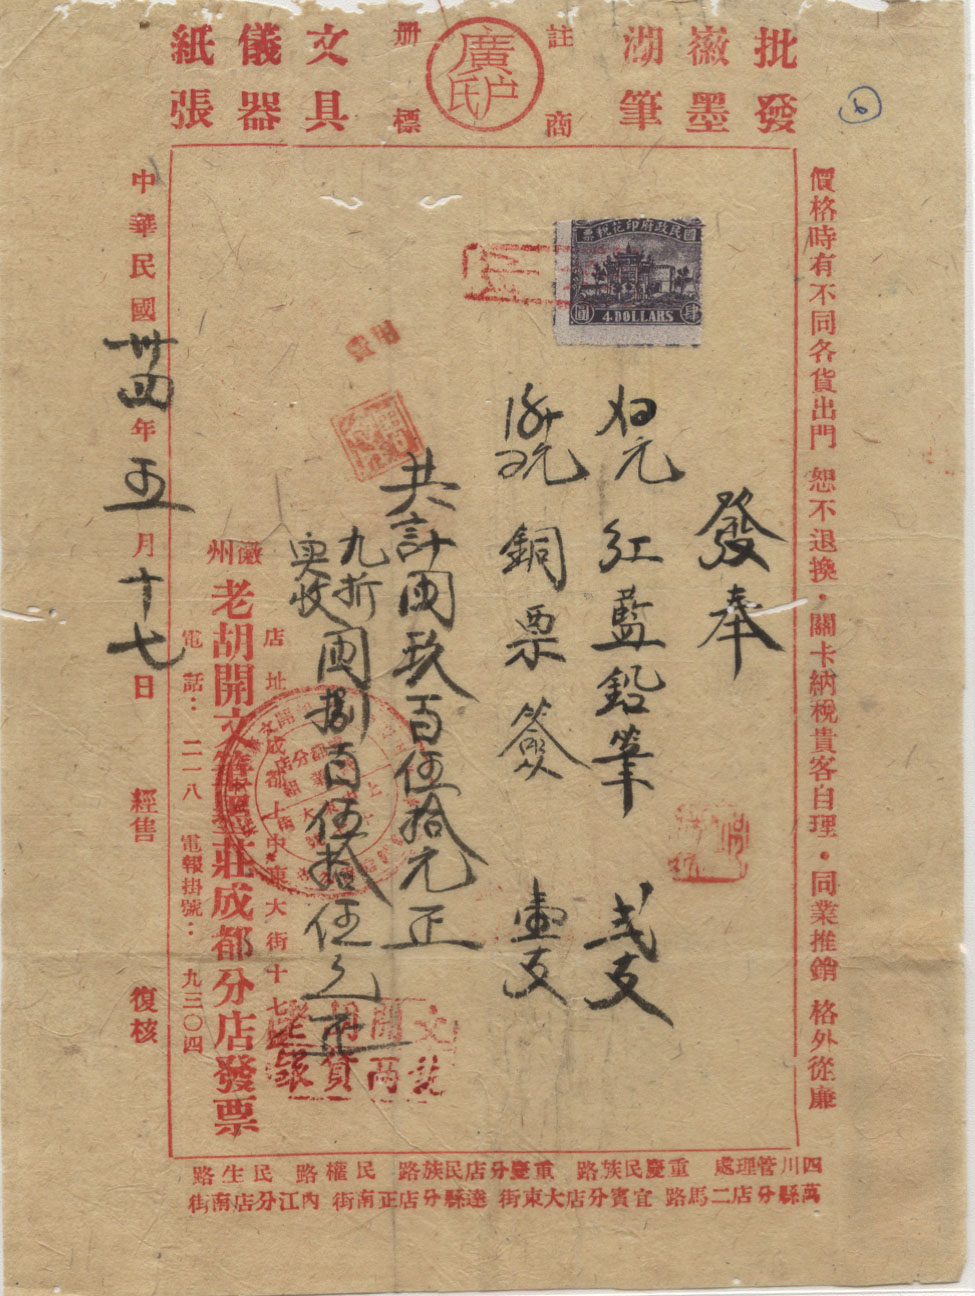 批發
徽墨
湖筆
註冊商標
廣戶氏
文具
儀器
紙張
價格時有不同各貨出門 恕不退換・關卡納稅貴客自理・同業推銷 格外從廉
國民政府印花稅票
4 DOLLARS
肆圓
發奉
紅藍鉛筆 弍支
銅票簽 壹支
共計國幣玖百伍拾元正
九折
實收
國幣捌百伍拾伍元正
費用
店址成都上中東大街十七號
徽州老胡開文筆墨莊成都分店發票
電話：二一八 電報掛號：九三〇四
中華民國卅四年五月十七日 經售 復核
四川管理處 重慶民族路 重慶分店民族路 民權路 民生路
萬縣分店二馬路 宜賓分店大東街 達縣分店正南街 內江分店南街